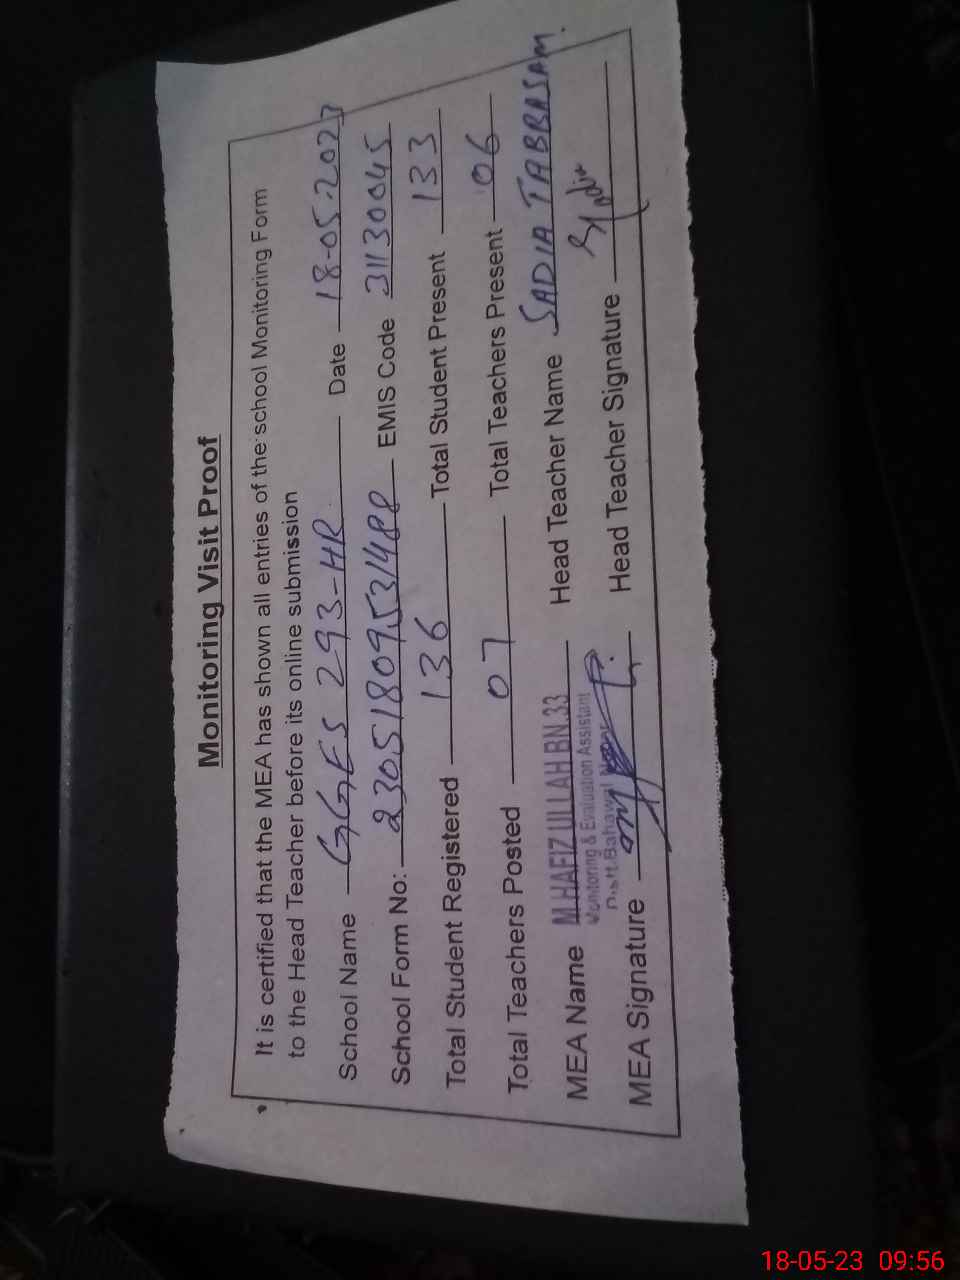 Monitoring Visit Proof
It is certified that the MEA has shown all entries of the school Monitoring Form
to the Head Teacher before its online submission
School Name GGES 293-HR Date 18-05-2023
School Form No: 23051809531488 EMIS Code 31130045
Total Student Registered 136 Total Student Present 133
Total Teachers Posted 07 Total Teachers Present 06
MEA Name M.HAFIZ ULLAH BN.33 Head Teacher Name SADIA TABBASAM.
Monitoring & Evaluation Assistant
Distt. Bahawal
MEA Signature Head Teacher Signature Sadia
18-05-23 09:56